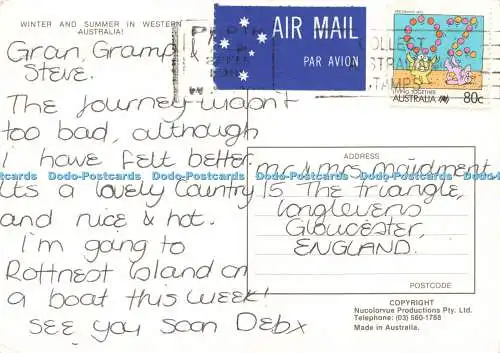 WINTER AND SUMMER IN WESTERN
AUSTRALIA!
Gran, Gramp &
Steve.
The Journey wasn't
too bad, although
I have felt better.
Its a lovely Country
and nice & hot.
I'm going to
Rottnest Island on
a boat this week!
See you soon Debx
AIR MAIL
PAR AVION
COLLECT
AUSTRALIAN
STAMPS
living together
AUSTRALIA 80c
ADDRESS
Mr & Mrs Maidment
15 The triangle,
longlevens
Gloucester,
ENGLAND.
POSTCODE
COPYRIGHT
Nucolorvue Productions Pty. Ltd.
Telephone: (03) 560-1788
Made in Australia.
Dodo-Postcards Dodo-Postcards Dodo-Postcards Dodo-Postcards